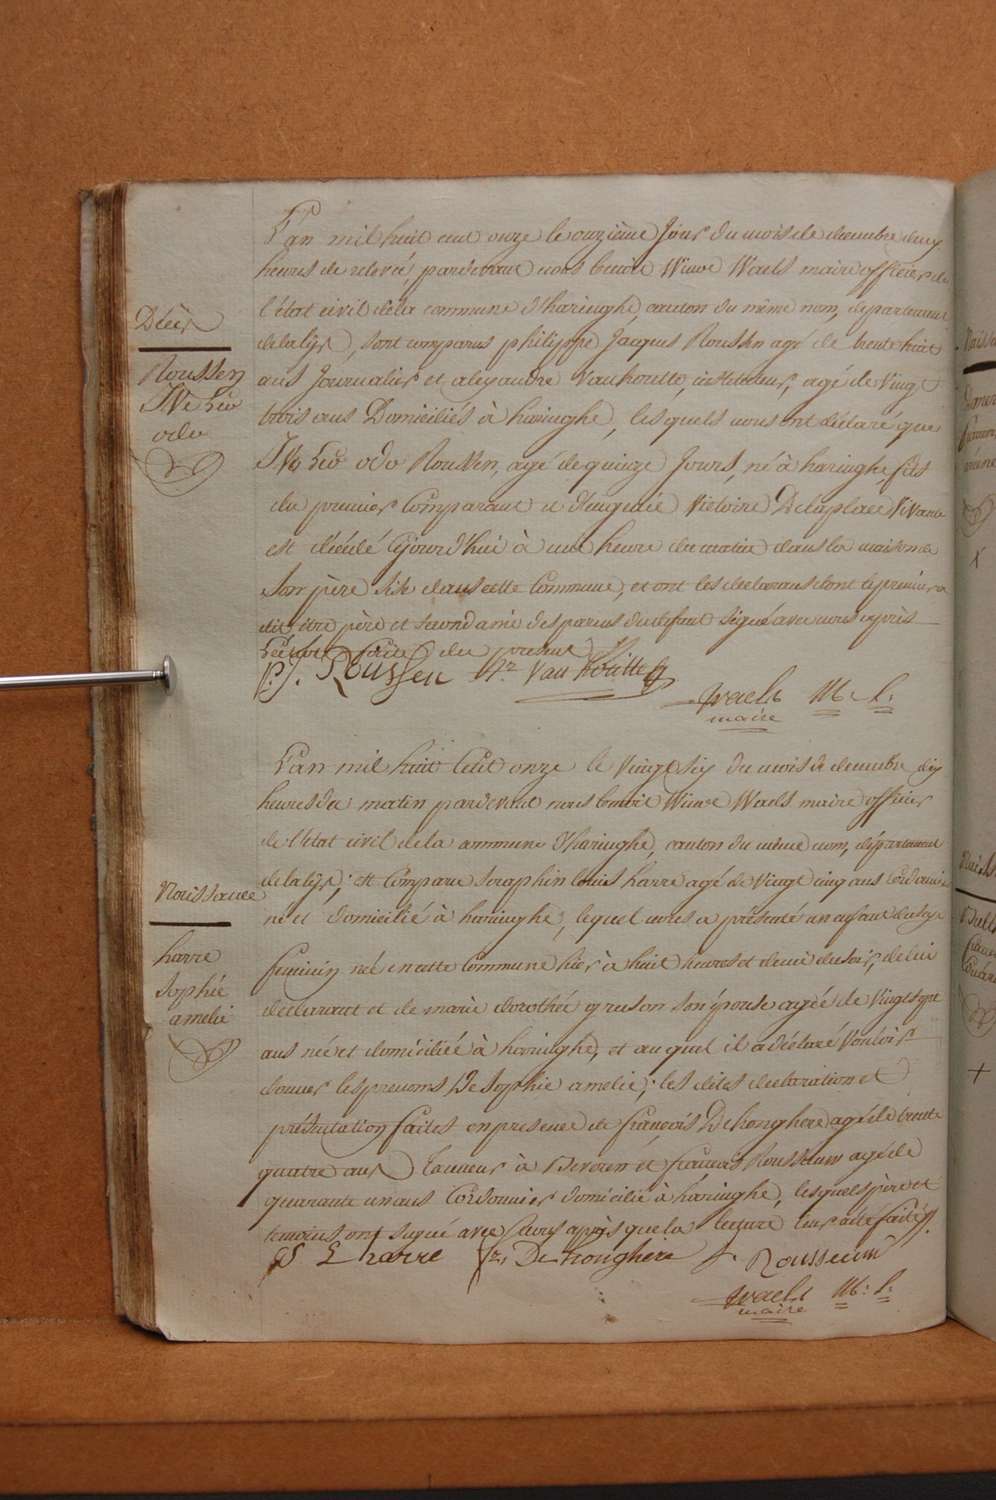 L'an mil huit cent onze le onzieme Jour du mois de decembre deux
heures de relevée, pardevant nous benoit Winoc Waels maire officier de
l'état civil de la commune d'haringhe, canton du même nom, departement
Décès
de la lys, sont comparus philippe Jacques Roussen agé de trente huit
Roussen
ans Journalier et alexandre Vanhoutte, instituteur, agé de Vingt
IVo Leo
trois ans Domiciliés à haringhe, lesquels nous ont déclaré que
odo
IVo Leo odo Roussen, agé de quinze Jours, né à haringhe, fils
du premier Comparant et d'eugenie Victoire Delaplace Vivante
est décédé cejourd'hui à une heure du matin dans la maison de
Son père Sise dans cette Commune, et ont les declarans dont le premier a
dit être père et second ami des parens du defunt Signé avec nous après
Lecture faite du present
P. J. Roussen Ar Van houtte
Waels M. L.
maire
L'an mil huit Cent onze le Vingt Six du mois de decembre dix
heures du matin pardevant nous benoit Winoc Waels maire officier
de l'état civil de la commune d'haringhe, canton du même nom, département
Naissance
de la lys; est Comparu Seraphin louis harre agé de Vingt cinq ans cordonnier
né et domicilié à haringhe, lequel nous a présenté un enfant du Sexe
harre
feminin née en cette Commune hier à huit heures et demie du Soir, de lui
Sophie
déclarant et de marie dorothée gruson Son épouse agée de Vingt sept
amelie
ans née et domiciliée à haringhe, et auquel il a déclaré Vouloir
donner les prenoms De Sophie amelie; les dites declaration et
présentation faites en presence de françois Dehonghere agé de trente
quatre ans Tanneur à Beveren et françois Rousseeuw agé de
quarante un ans Cordonnier domicilié à haringhe, lesquels père et
temoins ont signé avec Nous après que la lecture leur a été faite
S L harre Fr. De honghere f. Rousseeuw
Waels M: L:
maire